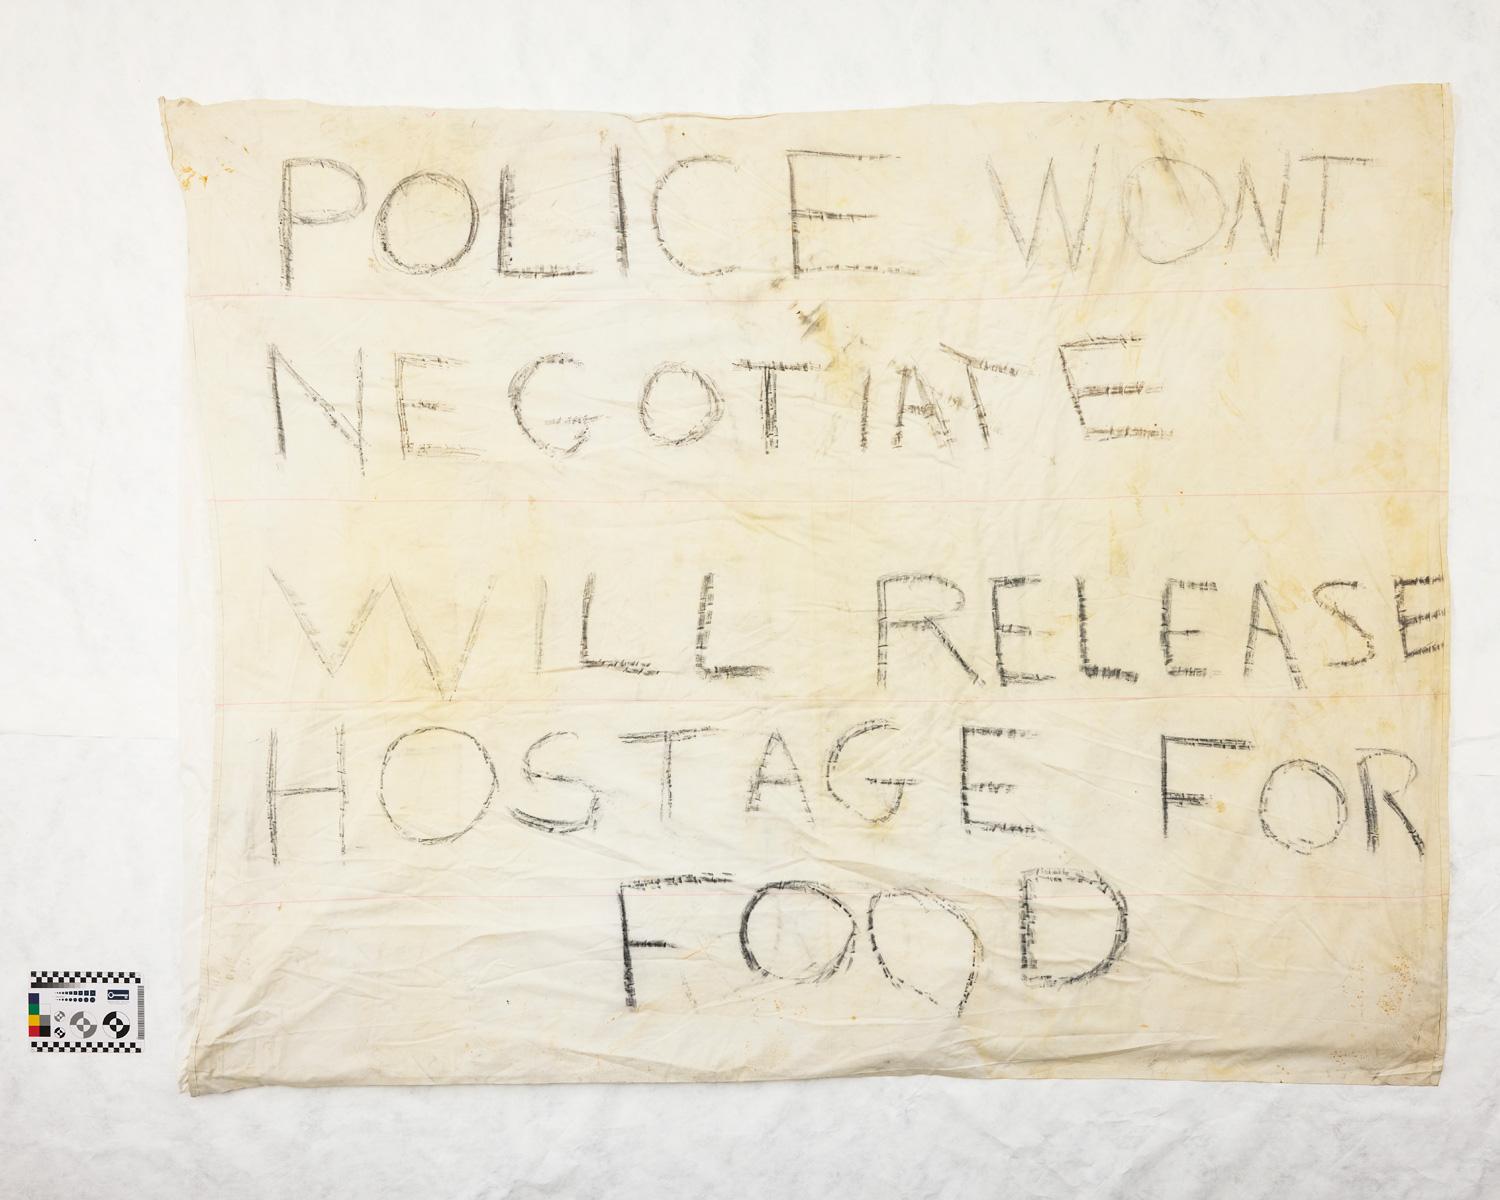 POLICE WONT
NEGOTIATE
WILL RELEASE
HOSTAGE FOR
FOOD